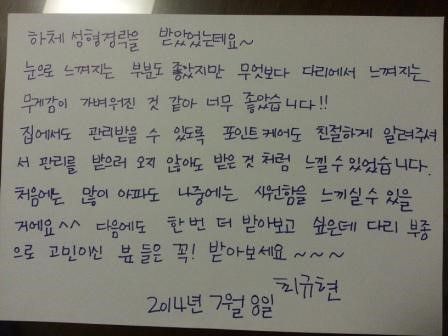 하체 성형경락을 받았었는데요~
눈으로 느껴지는 부분도 좋았지만 무엇보다 다리에서 느껴지는
무게감이 가벼워진 것 같아 너무 좋았습니다!!
집에서도 관리받을 수 있도록 포인트케어도 친절하게 알려주셔
서 관리를 받으러 오지 않아도 받은것 처럼 느낄수있었습니다.
처음에는 많이 아파도 나중에는 시원함을 느끼실 수 있을
거에요^^ 다음에도 한 번 더 받아보고 싶은데 다리 부종
으로 고민이신 분들은 꼭! 받아보세요~~~
최규현
2014년 7월 8일